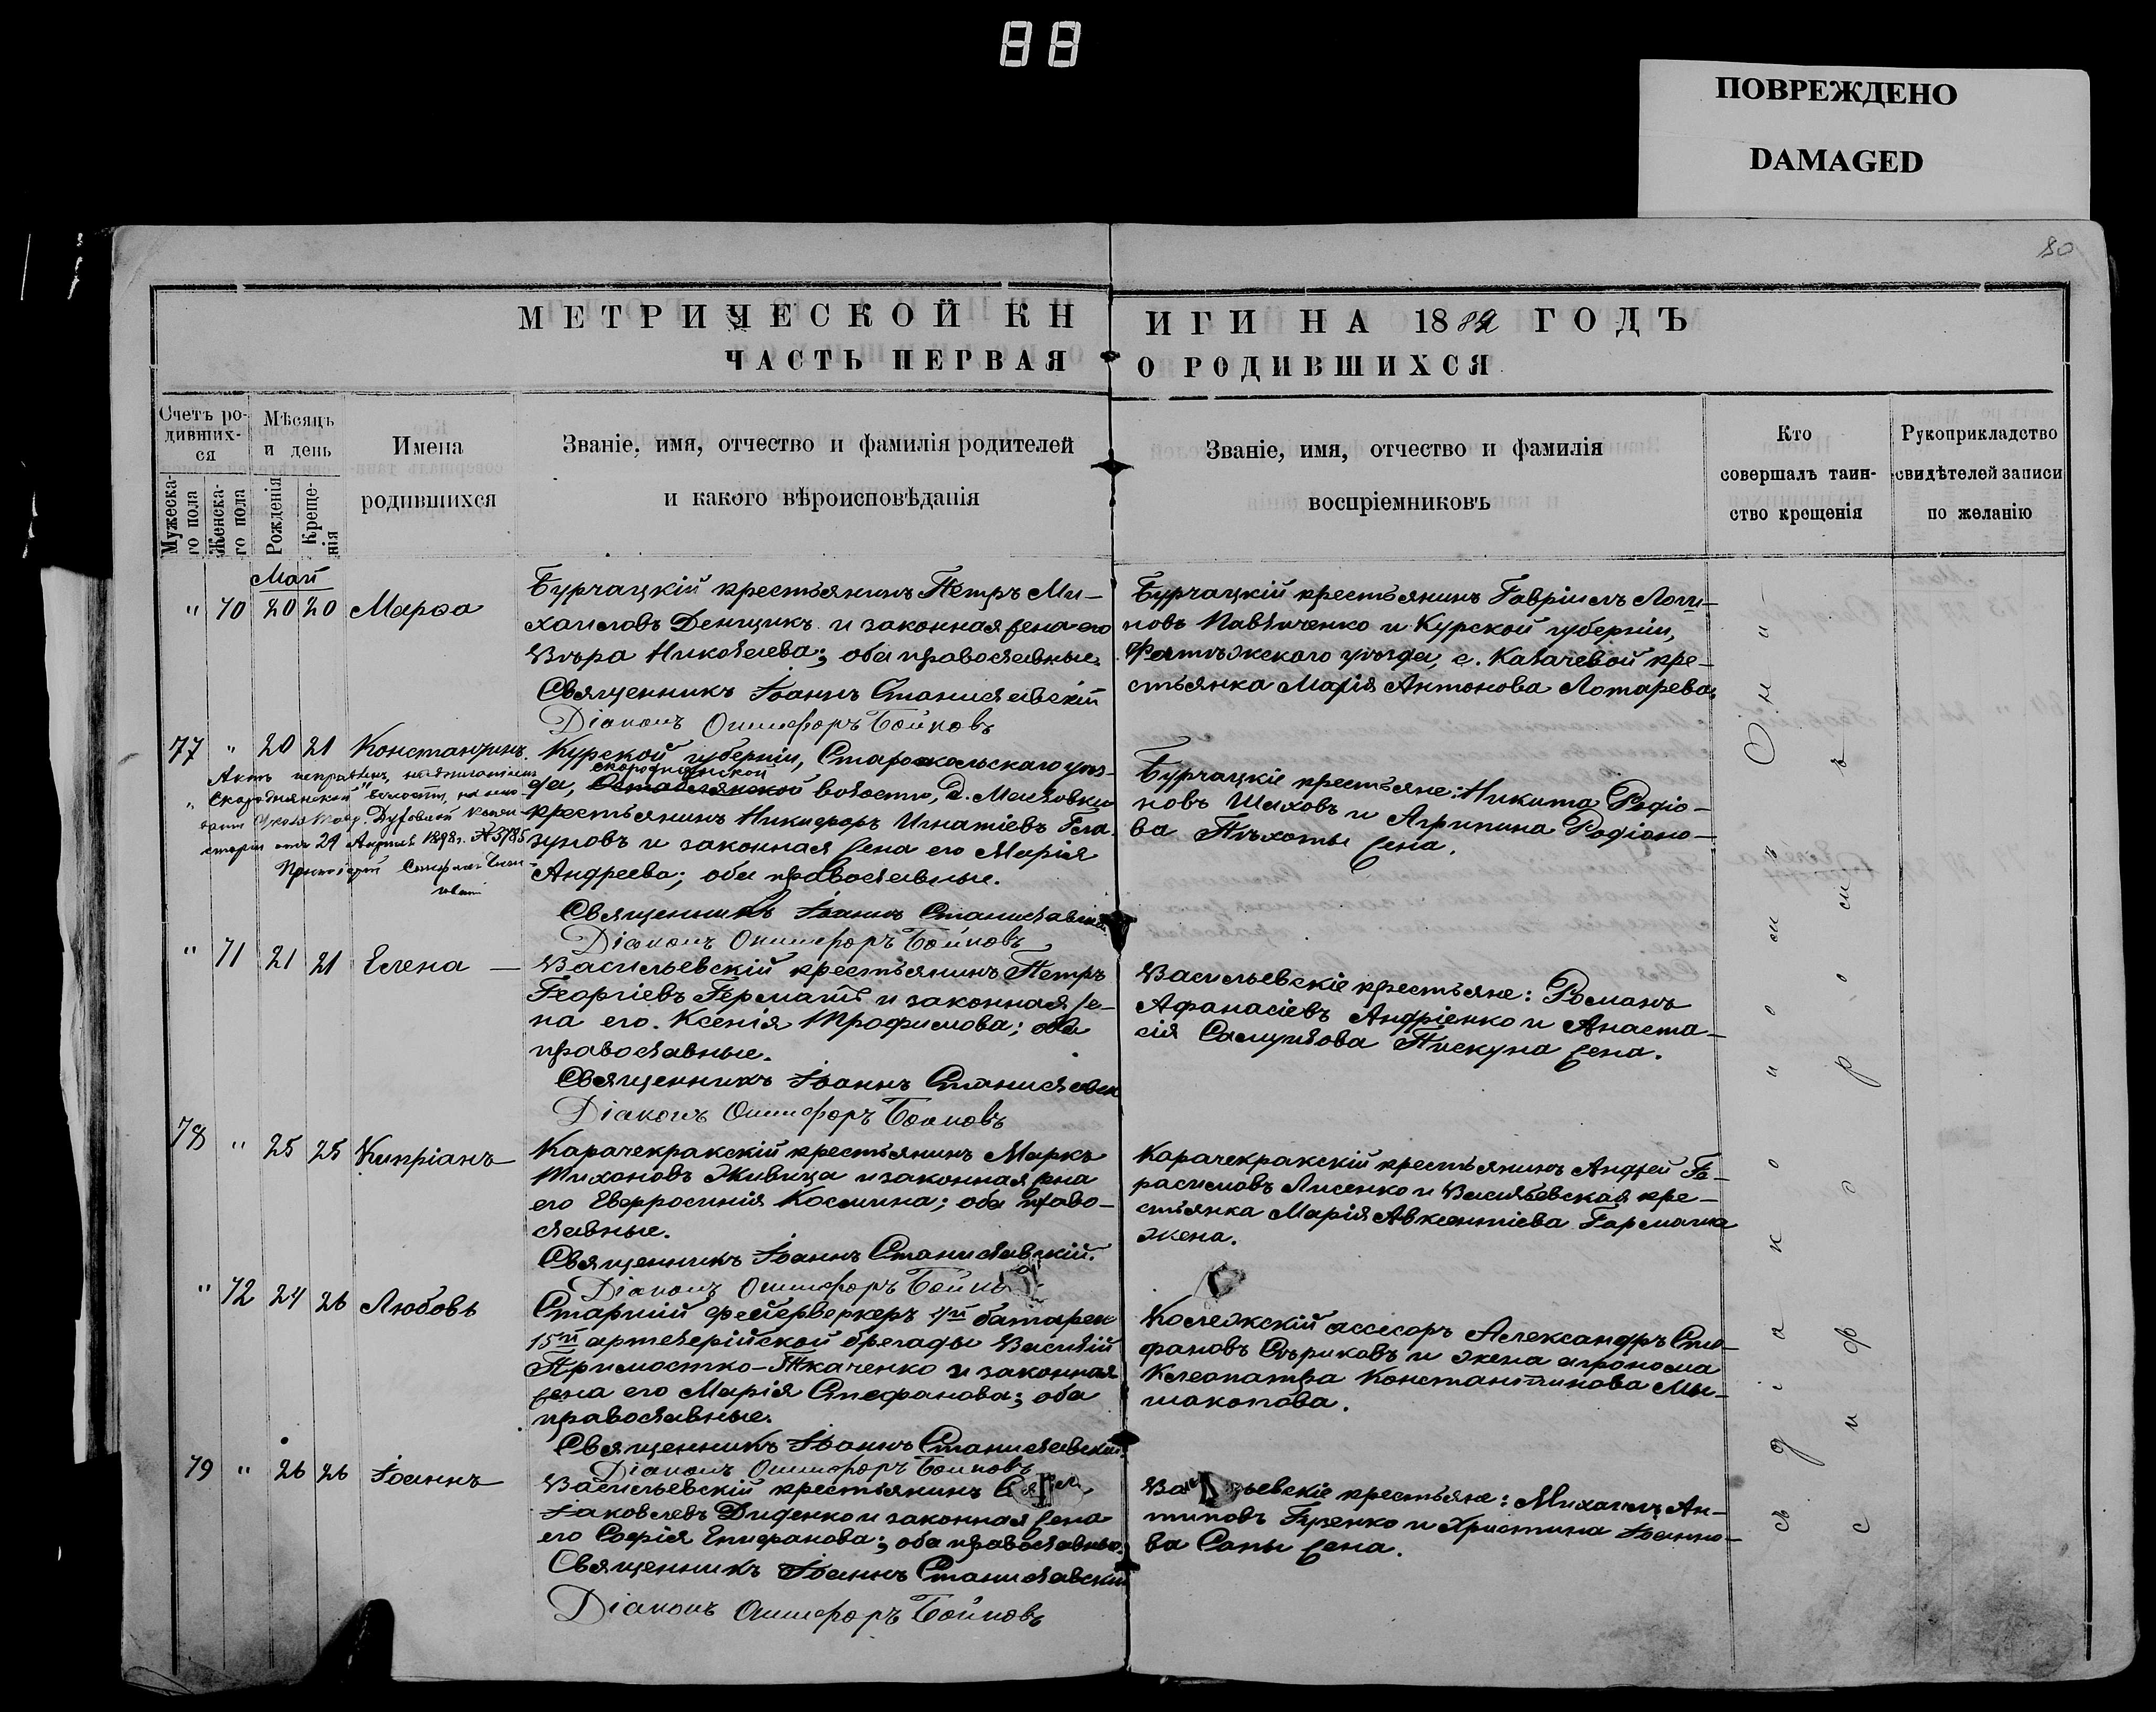 88
ПОВРЕЖДЕНО
DAMAGED
80
МЕТРИЧЕСКОЙ КН
ИГИ НА 1882 ГОДЪ
ЧАСТЬ ПЕРВАЯ
О РОДИВШИХСЯ
Счетъ ро-
дивших-
ся
Мужеска-
го пола
Женска-
го пола
Мѣсяцъ
и день
Рожденія
Креще-
нія
Имена
родившихся
Званіе, имя, отчество и фамилія родителей
и какого вѣроисповѣданія
Званіе, имя, отчество и фамилія
воспріемниковъ
Кто
совершалъ таин-
ство крещенія
Рукоприкладство
свидѣтелей записи
по желанію
Май
" 70 20 20 Марѳа
Бурчацкій крестьянинъ Петръ Ми-
хаиловъ Денщикъ и законная жена его
Вѣра Николаева; оба православные.
Священникъ Іоаннъ Станиславскій
Діаконъ Онисифоръ Бойковъ
Бурчацкій крестьянинъ Гавріилъ Логи-
новъ Павличенко и Курской губерніи,
Фатѣжскаго уѣзда, с. Казачевой кре-
стьянка Марія Антонова Лотарева.
77 " 20 21 Константинъ.
Актъ исправленъ,
Скороднянской волости, на осно-
ваніи Указа Тавр. Духовной Конси-
сторіи отъ 29 Апрѣля 1898 г. № 3785
Протоіерей
Курской губерніи, Старооскольскаго уѣз-
скороднянской
да, волости, д. Масловки
крестьянинъ Никифоръ Игнатіевъ Гла-
зуновъ и законная жена его Марія
Андреева; оба православные.
Священникъ Іоаннъ Станиславскій
Діаконъ Онисифоръ Бойковъ
Бурчацкіе крестьяне: Никита Родіо-
новъ Шаховъ и Агрипина Родіоно-
ва Пѣхоты жена.
" 71 21 21 Елена —
Васильевскій крестьянинъ Петръ
Георгіевъ Гермашъ и законная же-
на его Ксенія Трофимова; оба
православные.
Священникъ Іоаннъ Станиславск
Діаконъ Онисифоръ Бойковъ
Васильевскіе крестьяне: Романъ
Афанасіевъ Андріенко и Анаста-
сія Самуилова Пискуна жена.
78 " 25 25 Кипріанъ
Карачекракскій крестьянинъ Маркъ
Тихоновъ Живица и законная жена
его Евфросинія Космина; оба право-
славные.
Священникъ Іоаннъ Станиславскій.
Діаконъ Онисифоръ Бойко
Карачекракскій крестьянинъ Андрей Ге-
расимовъ Лисенко и Васильевская кре-
стьянка Марія Авксентіева Гармаша
жена.
" 72 24 26 Любовь
Старшій фейерверкеръ 4й батареи
15й артилерійской бригады Василій
Примостко-Ткаченко и законная
жена его Марія Стефанова; оба
православные.
Священникъ Іоаннъ Станиславскій.
Діаконъ Онисифоръ Бойковъ
Колежскій ассесоръ Александръ Сте-
фановъ Сѣриковъ и жена агронома
Клеопатра Константинова Мы-
шакова.
79 " 26 26 Іоаннъ
Васильевскій крестьянинъ
Іаковлевъ Диденко и законная жена
его Софія Епифанова; оба православные.
Священникъ Іоаннъ Станиславскій
Діаконъ Онисифоръ Бойковъ
Васильевскіе крестьяне: Михаилъ Ан-
типовъ Гузенко и Христина Іоанно-
ва Сапы жена.
съ діакономъ Они-
сифоромъ